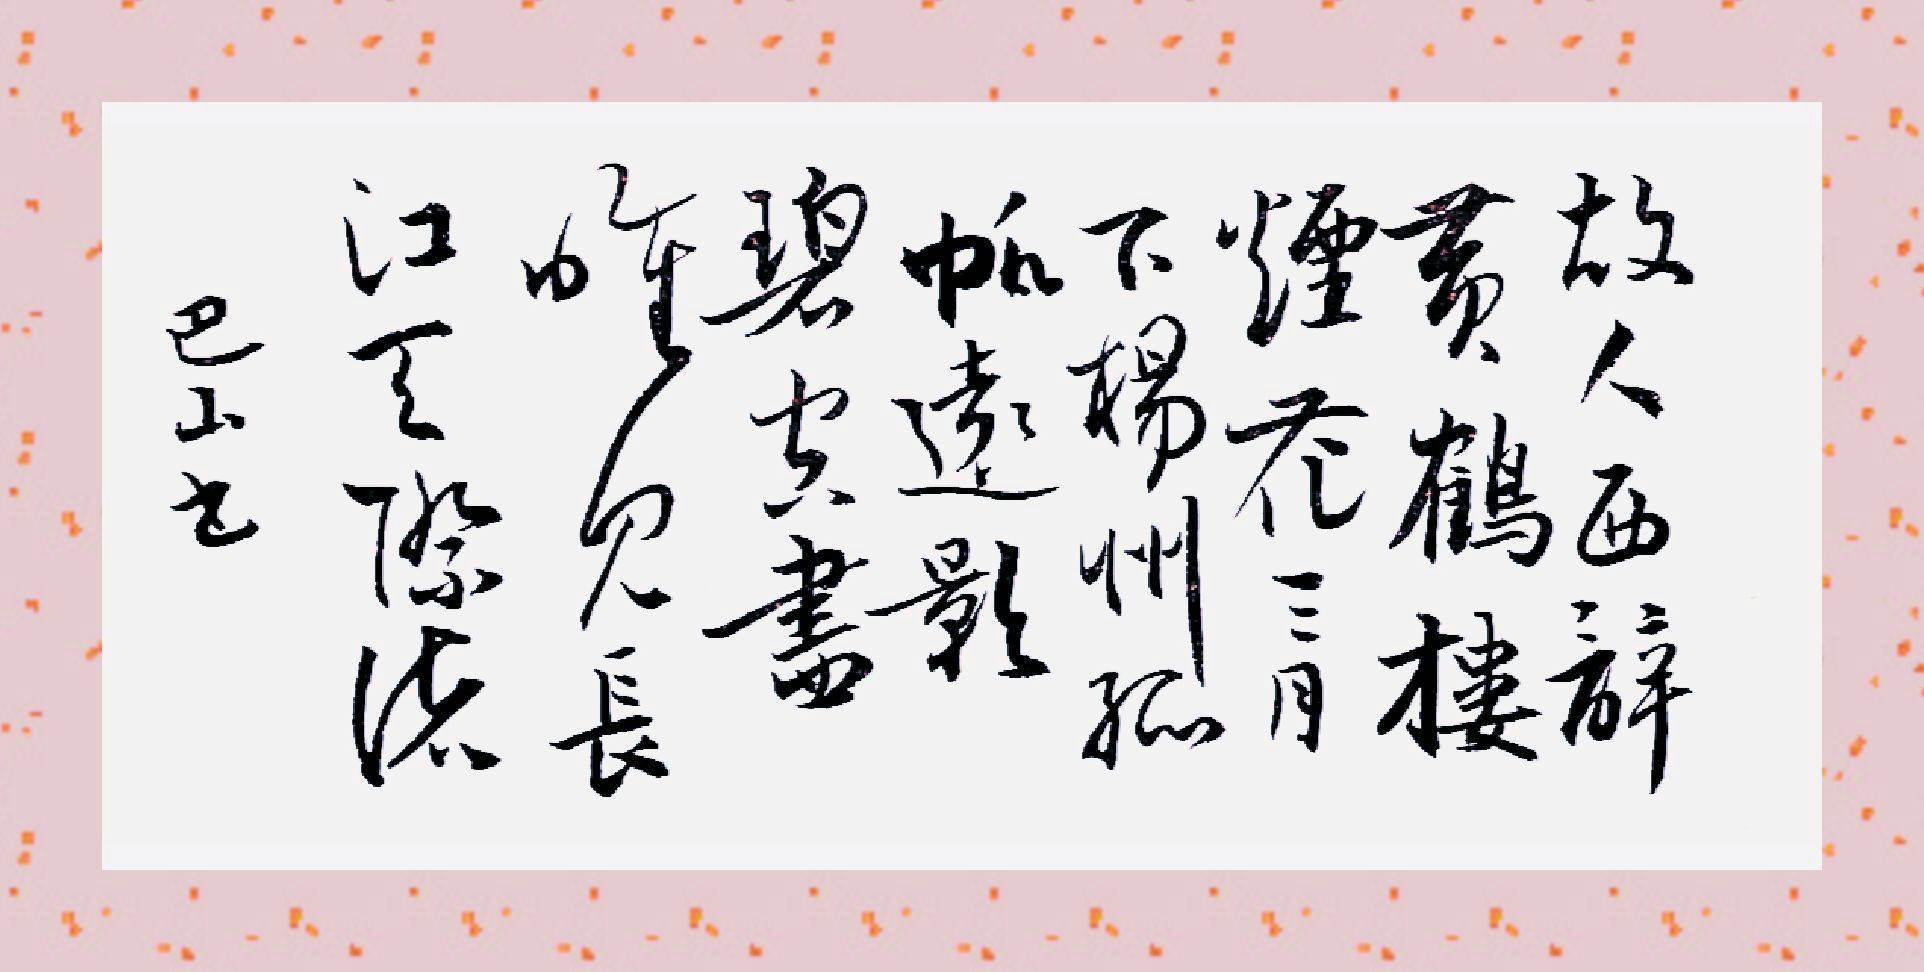 故人西辭
黃鶴樓
煙花三月
下楊州孤
帆遠影
碧空盡
唯見長
江天際流
巴山書